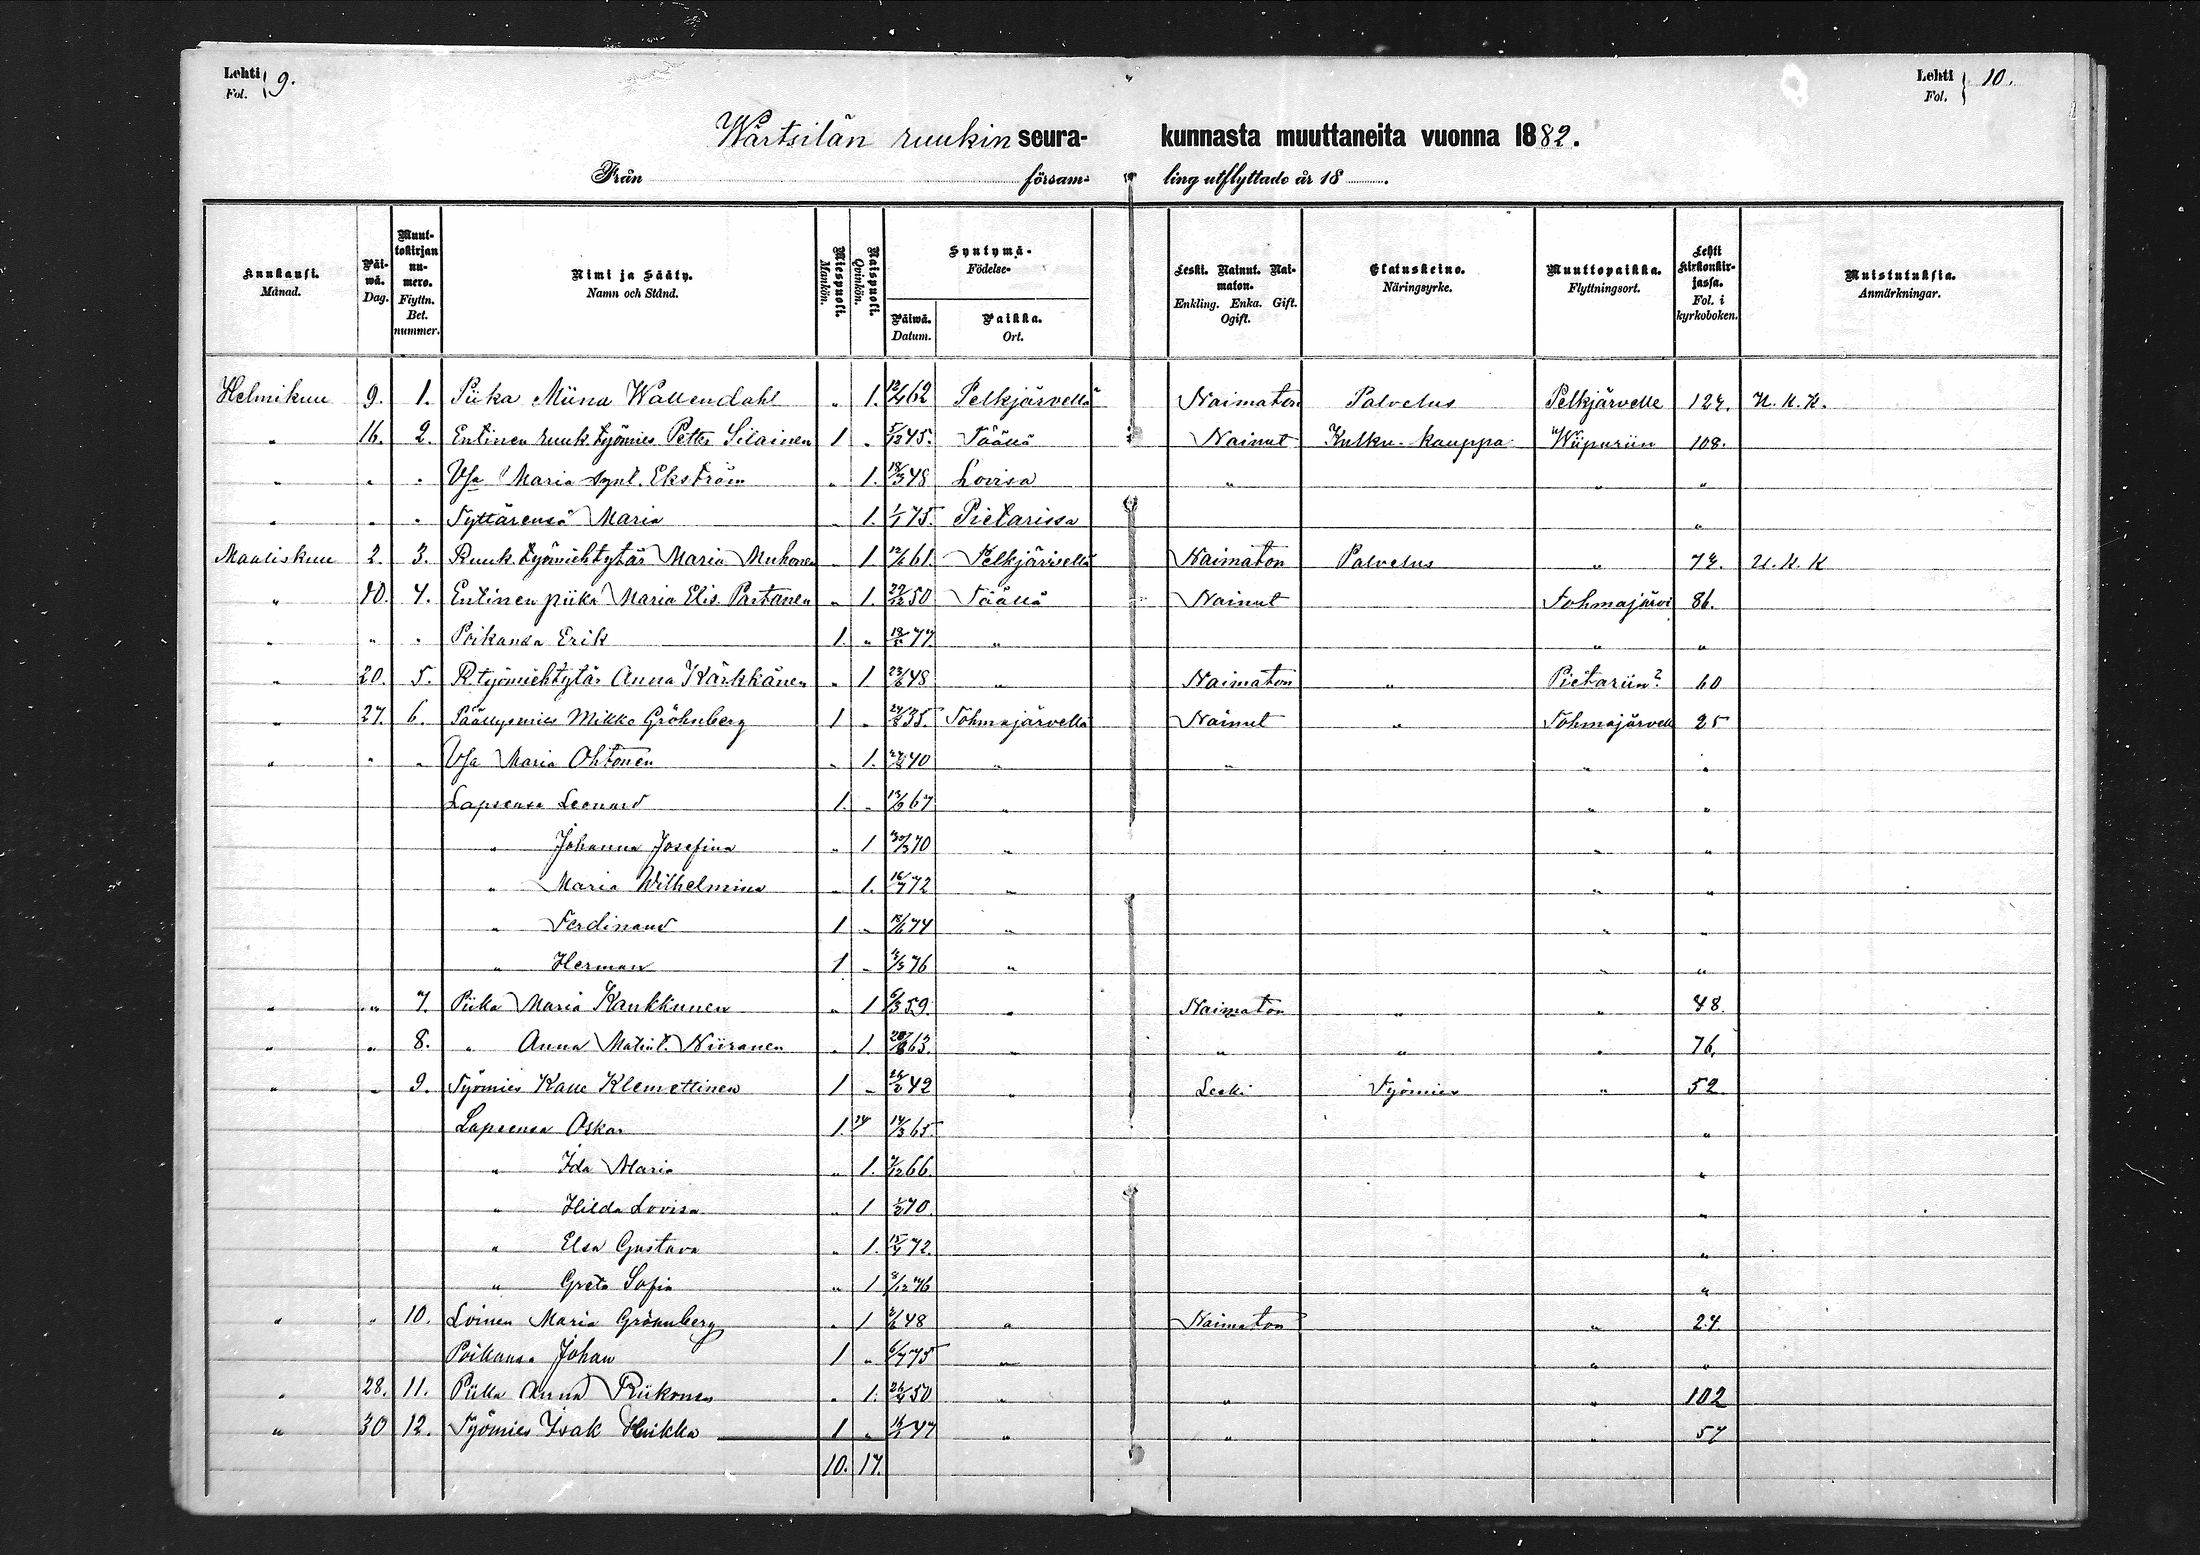 Lehti Fol. 9.
Lehti Fol. 10.
Wärtsilän ruukin seura- kunnasta muuttaneita vuonna 1882.
Från försam- ling utflyttade år 18 .
Kuukausi. Månad. Päi-wä. Dag. Muut-tokirjan nu-mero. Flyttn. Bet. nummer. Nimi ja Sääty. Namn och Stånd. Miespuoli. Mankön. Naispuoli. Qvinkön. Syntymä- Födelse- Päiwä. Datum. Paikka. Ort. Leski. Nainut. Nai-maton. Enkling. Enka. Gift. Ogift. Elatuskeino. Näringsyrke. Muuttopaikka. Flyttningsort. Lehti kirkonkir-jassa. Fol. i kyrkoboken. Muistutuksia. Anmärkningar.
Helmikuu 9. 1. Piika Miina Wallendahl " 1. 62 Pelkjärvellä Naimaton Palvelus Pelkjärvelle 127. N.K.K.
" 16. 2. Entinen ruuk. työmies Petter Silainen 1 " 5/12 45. Täällä Nainut Kulku-kauppa Wiipuriin 108.
" " " Vsa Maria synt. Ekström " 1. 18/3 48 Lovisa " " "
" " " Tyttärensä Maria " 1. 1/1 75. Pietarissa "
Maaliskuu 2. 3. Ruuk. työmiehtytär Maria Muhonen " 1 61. Pelkjärvellä Naimaton Palvelus " 74. N.K.K
" 10. 4. Entinen piika Maria Elis. Partanen " 1. 29/12 50 Täällä Nainut Tohmajärvi 86.
" " " Poikansa Erik 1. " 77. " " "
" 20. 5. R. työmiehtytär Anna Kärkkänen " 1 48 " Naimaton " Pietariin? 60
" 27. 6. Päällysmies Mikko Gröhnberg 1 " 35. Tohmajärvellä Nainut " Tohmajärvelle 25
" " " Vsa Maria Ohtonen " 1. 40 " " " "
Lapsensa Leonard 1. " 13/9 67 " " "
" Johanna Josefina " 1 70 " " "
" Maria Wilhelmina " 1. 16/7 72 " " "
" Ferdinand 1 " 74 " " "
" Herman 1 " 76 " " "
" " 7. Piika Maria Kaukkunen " 1 6/3 59. " Naimaton " " 48.
" " 8. " Anna Matint. Niiranen " 1. 63. " " " " 76.
" " 9. Työmies Kalle Klemettinen 1 " 42 " Leski Työmies " 52
Lapsensa Oskar 1. 14/3 65. "
" Ida Maria " 1. 66 "
" Hilda Lovisa " 1 70. "
" Elsa Gustava " 1. 72. "
" Greta Sofia " 1 8/12 76 "
" " 10. Loinen Maria Gröhnberg " 1 48 " Naimaton " 24.
Poikansa Johan 1 " 6/7 75 " " "
" 28. 11. Piika Anna Riikonen " 1. 50 " " " 102
" 30 12. Työmies Isak Huikka 1 " 47 " " " 57
10. 17.